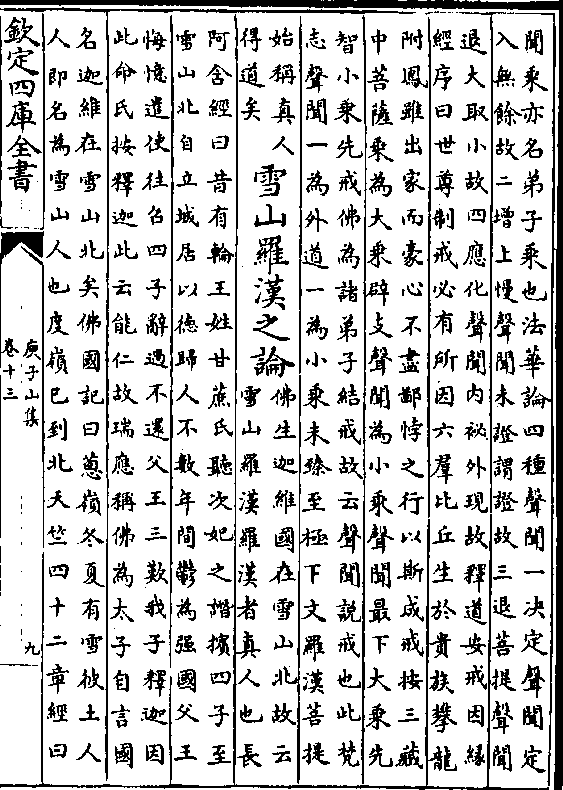 聞乘亦名弟子乘也法華論四種聲聞一决定聲聞定
入無餘故二增上慢聲聞未證謂證故三退菩提聲聞
退大取小故四應化聲聞内祕外現故釋道安戒因緣
經序曰世尊制戒必有所因六羣比丘生於貴族攀龍
附鳳雖出家而豪心不盡鄙悖之行以斯成戒按三藏
中菩薩乘為大乘辟支聲聞為小乘聲聞最下大乘先
智小乘先戒佛為諸弟子結戒故云聲聞説戒也此梵
志聲聞一為外道一為小乘未臻至極下文羅漢菩提
始稱真人
得道矣
雪山羅漢之論
佛生迦維國在雪山北故云
雪山羅漢羅漢者真人也長
阿含經曰昔有輪王姓甘蔗氏聽次妃之譖擯四子至
雪山北自立城居以德歸人不數年間鬱為强國父王
悔憶遣使往召四子辭過不還父王三歎我子釋迦因
此命氏按釋迦此云能仁故瑞應稱佛為太子自言國
名迦維在雪山北矣佛國記曰蔥嶺冬夏有雪彼土人
人即名為雪山人也度嶺已到北天竺四十二章經曰
欽定四庫全書
庾子山集
卷十三
九